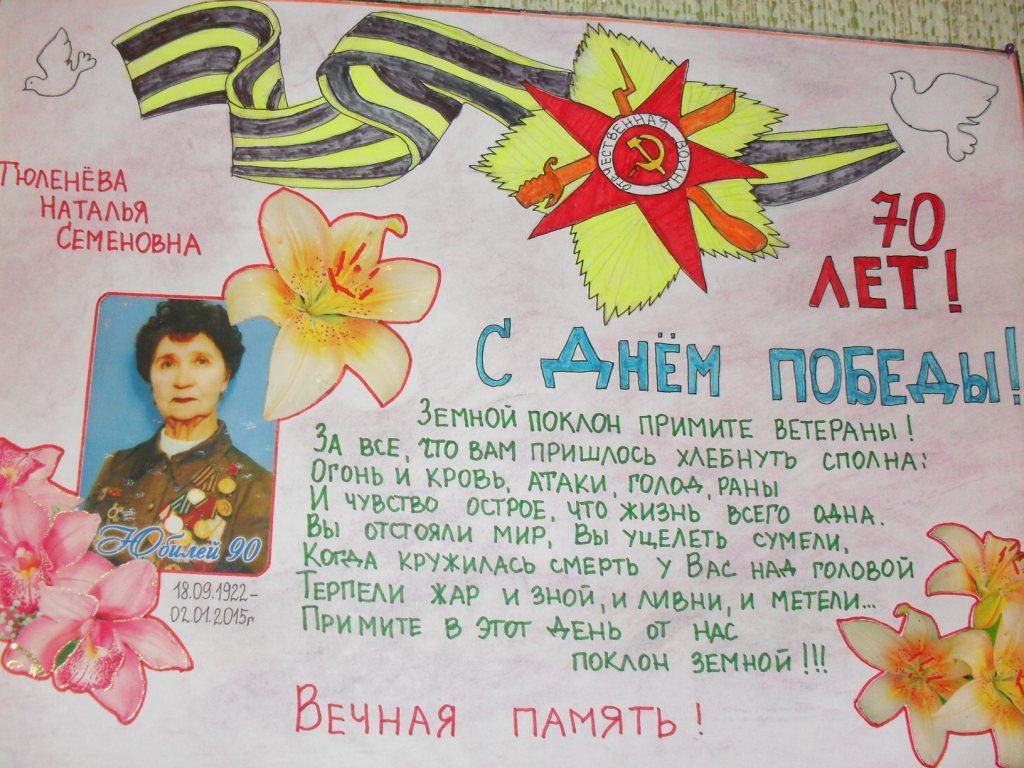 ОТЕЧЕСТВЕННАЯ ВОЙНА
ТЮЛЕНЁВА
НАТАЛЬЯ
СЕМЕНОВНА
70
ЛЕТ!
С ДНЁМ ПОБЕДЫ!
ЗЕМНОЙ ПОКЛОН ПРИМИТЕ ВЕТЕРАНЫ!
ЗА ВСЕ, ЧТО ВАМ ПРИШЛОСЬ ХЛЕБНУТЬ СПОЛНА:
ОГОНЬ И КРОВЬ, АТАКИ, ГОЛОД, РАНЫ
И ЧУВСТВО ОСТРОЕ, ЧТО ЖИЗНЬ ВСЕГО ОДНА.
ВЫ ОТСТОЯЛИ МИР, ВЫ УЦЕЛЕТЬ СУМЕЛИ,
КОГДА КРУЖИЛАСЬ СМЕРТЬ У ВАС НАД ГОЛОВОЙ
ТЕРПЕЛИ ЖАР И ЗНОЙ, И ЛИВНИ, И МЕТЕЛИ...
ПРИМИТЕ В ЭТОТ ДЕНЬ ОТ НАС
ПОКЛОН ЗЕМНОЙ!!!
Юбилей 90
18.09.1922-
02.01.2015г
ВЕЧНАЯ ПАМЯТЬ!